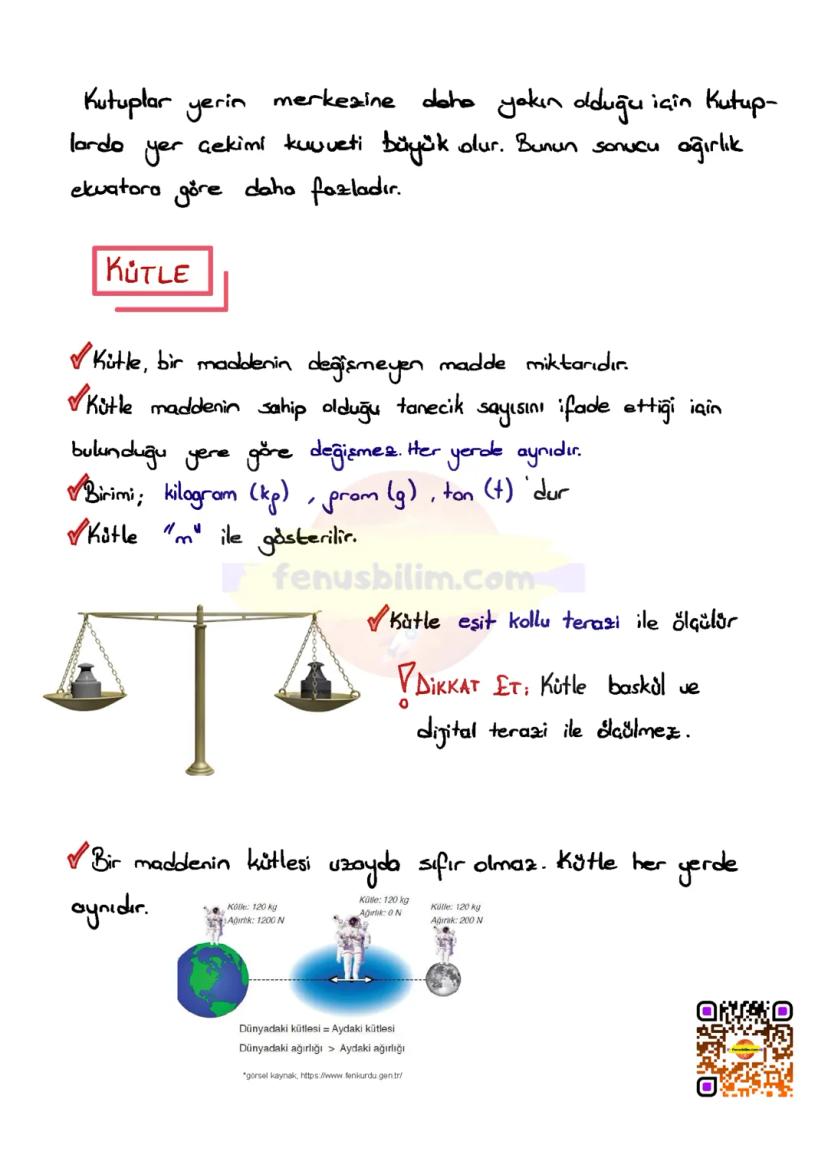 Kutuplar yerin merkezine daha yakın olduğu için Kutup-
larda yer çekimi kuvveti büyük olur. Bunun sonucu ağırlık
ekvatora göre daha fazladır.
KÜTLE
Kütle, bir maddenin değişmeyen madde miktarıdır.
Kütle maddenin sahip olduğu tanecik sayısını ifade ettiği için
bulunduğu yere göre değişmez. Her yerde aynıdır.
Birimi; kilogram (kg), gram (g), ton (t) 'dur
Kütle "m" ile gösterilir.
fenusbilim.com
Kütle eşit kollu terazi ile ölçülür
! DİKKAT ET; Kütle baskül ve
dijital terazi ile ölçülmez.
Bir maddenin kütlesi uzayda sıfır olmaz. Kütle her yerde
aynıdır.
Kütle: 120 kg
Ağırlık: 1200 N
Kütle: 120 kg
Ağırlık: 0 N
Kütle: 120 kg
Ağırlık: 200 N
Dünyadaki kütlesi = Aydaki kütlesi
Dünyadaki ağırlığı > Aydaki ağırlığı
*görsel kaynak, https://www.fenkurdu.gen.tr/
fenusbilim.com